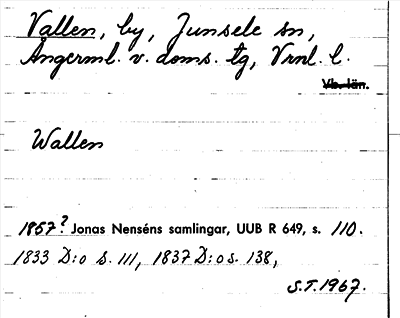 Vallen, by, Junsele sn,
Ångerml. v. doms. tg, Vrnl. l.
Vb. län.
Wallen
1857? Jonas Nenséns samlingar, UUB R 649, s. 110.
1833 D:o s. 111, 1837 D:o s. 138,
S.T. 1967.